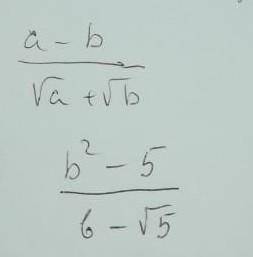 a - b
√a + √b
b² - 5
6 - √5